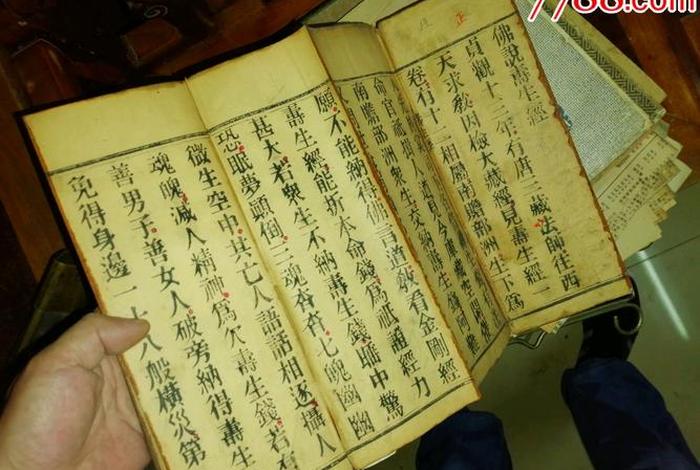 7788.com
正
佛說壽生經
貞觀十三年有唐三藏法師往西
天求教因儉大藏經見壽生經一
卷有十二相屬南瞻部洲生下為
人道見今庫藏空
南瞻部洲眾生交納壽生錢阿
願不能納得佛言道教看金剛經
壽生經能折本命錢為祇證經力
甚大若眾生不納壽生錢睡中驚
恐眠夢顛倒三魂杳杳七魄幽幽
微生空中共亡人語話相逐攝人
魂魄減人精神為欠壽生錢若有
善男子善女人破旁納得壽生
免得身邊一十八般橫災第